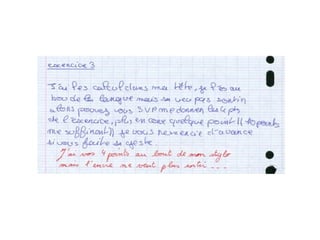 exercice 3
J'ai les calcul dans ma tête, je l'ai au
bou de la langue mais sa veu pas sortir
alors pouvez vous SVP me donner les 4 pts
de l'exercice, plus encore quelque point !! 10 points
me suffiront !! je vous remercie d'avance
si vous faite se geste.
J'ai vos 4 points au bout de mon stylo
mais l'encre ne veut plus sortir ...